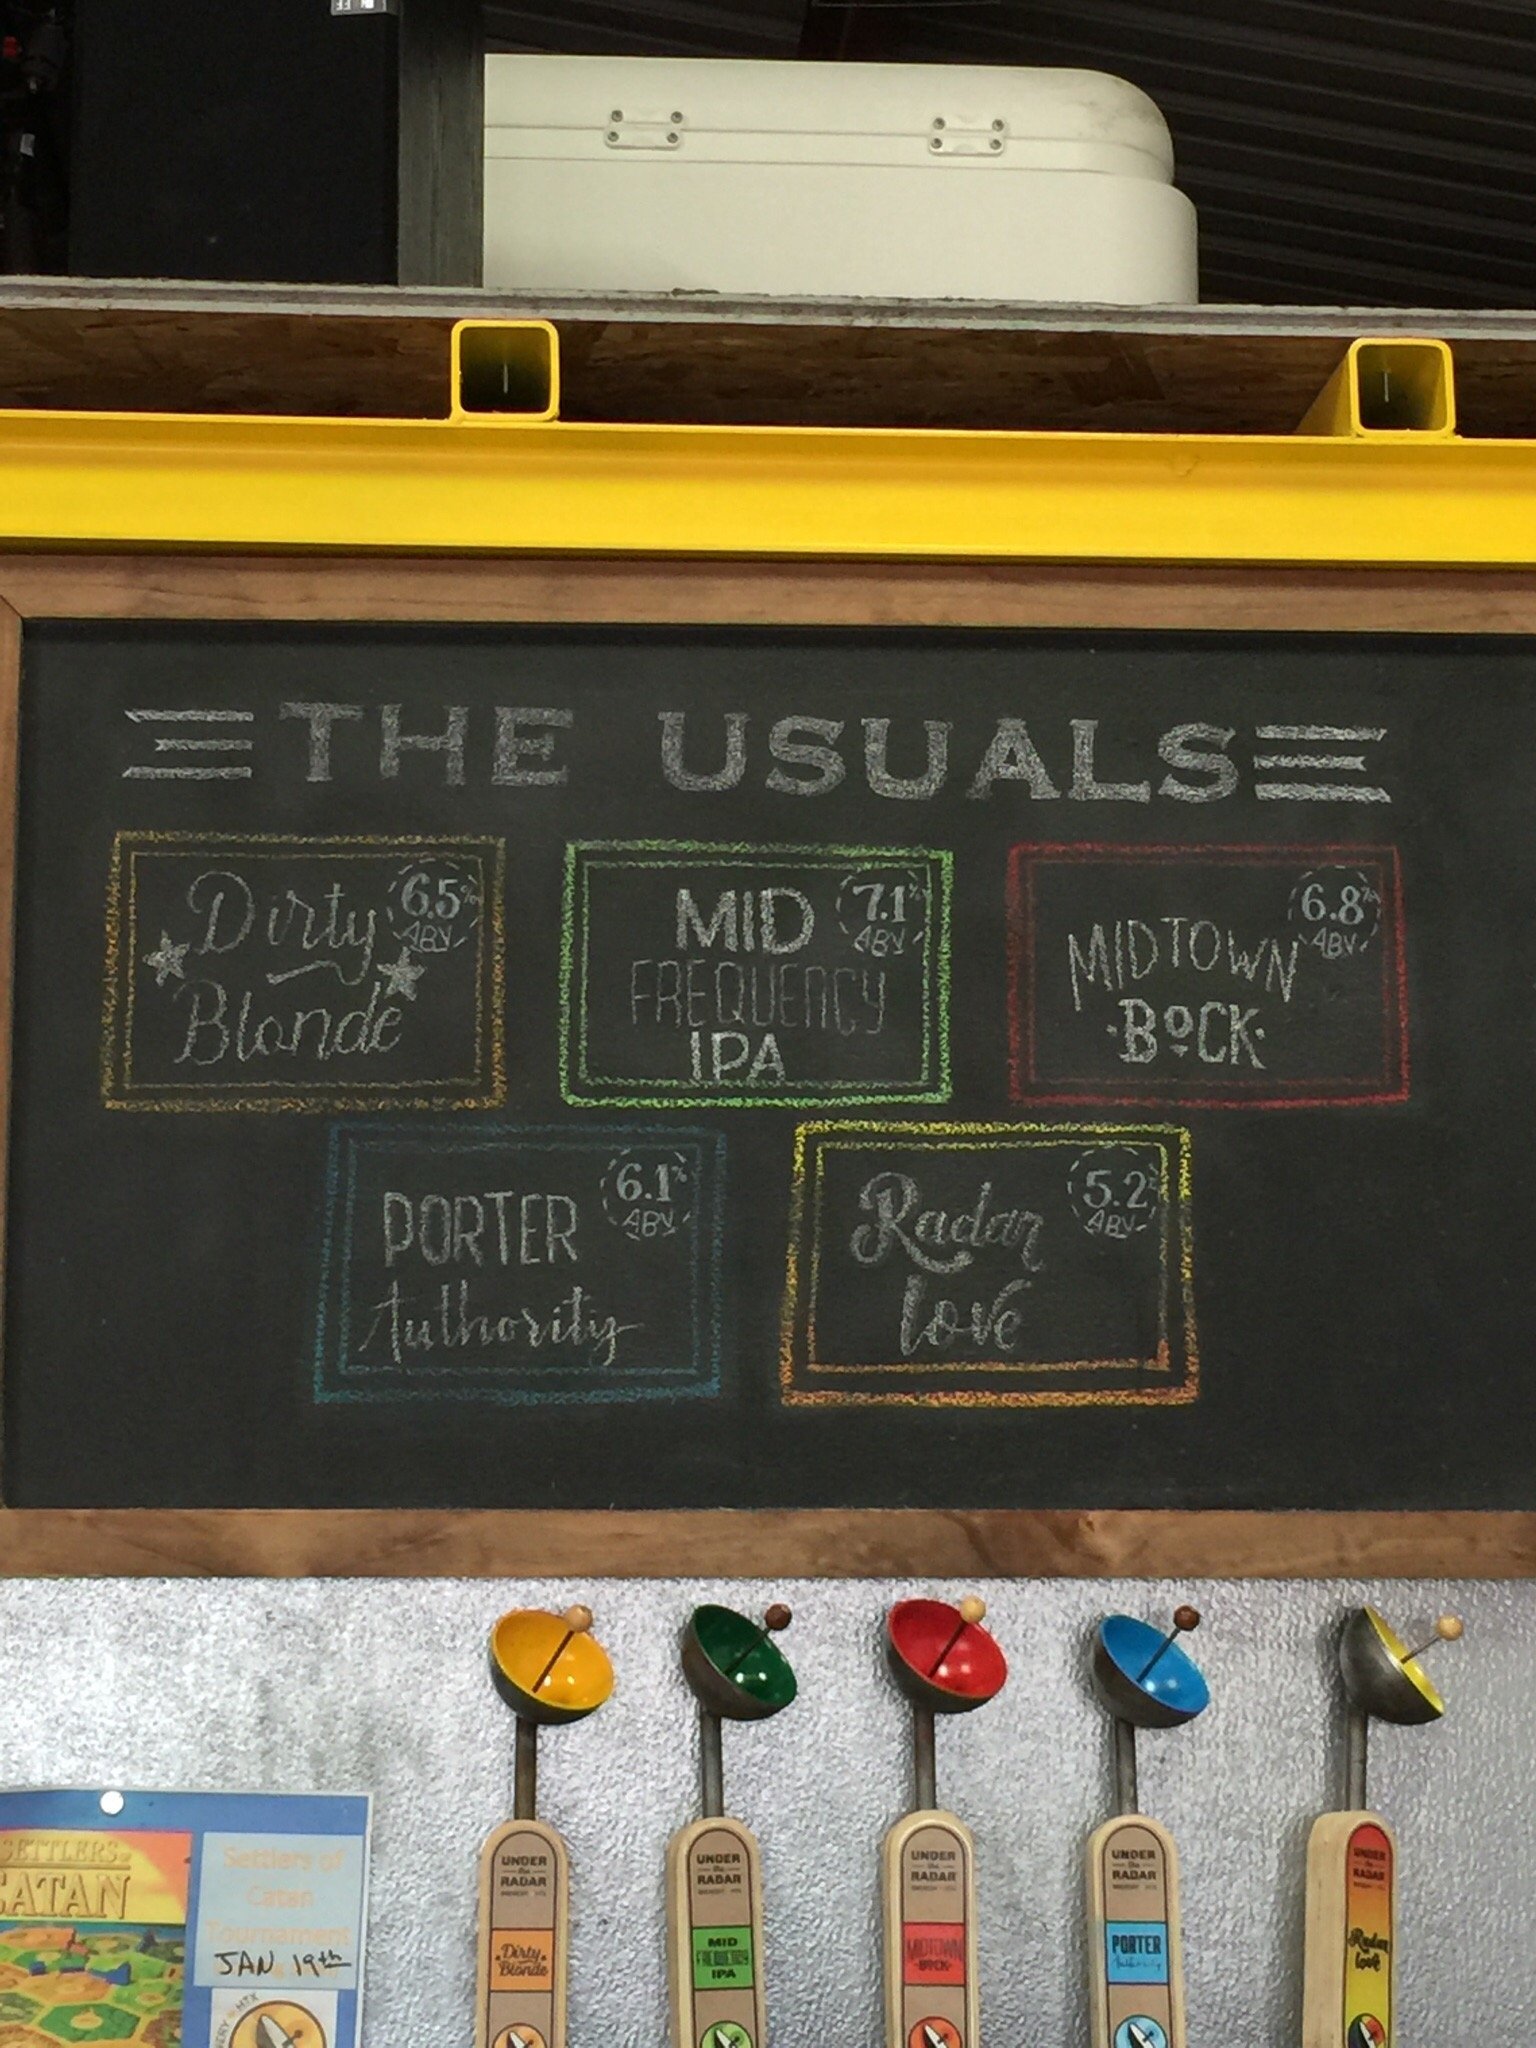 THE USUALS
Dirty
Blonde
6.5%
ABV
MID
FREQUENCY
IPA
7.1%
ABV
MIDTOWN
BOCK
6.8%
ABV
PORTER
Authority
6.1%
ABV
Radar
love
5.2%
ABV
SETTLERS
CATAN
Settlers of
Catan
Tournament
JAN 19th
HTX
UNDER
the
RADAR
Dirty
Blonde
UNDER
the
RADAR
MID
FREQUENCY
IPA
UNDER
the
RADAR
MIDTOWN
BOCK
UNDER
the
RADAR
PORTER
Authority
UNDER
the
RADAR
Radar
love